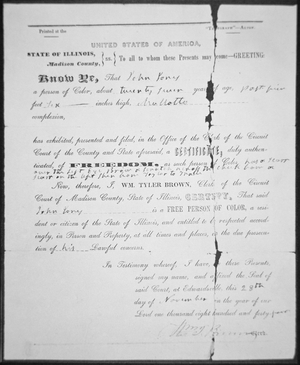 Printed at the
UNITED STATES OF AMERICA,
STATE OF ILLINOIS, } ss. To all to whom these Presents may come—GREETING
Madison County,
Know Ye, That John Jones
a person of Color, about twenty seven years of age,
feet six inches high, Mulatto
complexion,
has exhibited, presented and filed, in the Office of the Clerk of the Circuit
Court of the County and State aforesaid, a CERTIFICATE, duly authen-
ticated, of FREEDOM, as such person of Color has a Scar
over the left
Scar on the left
Now, therefore, I, WM. TYLER BROWN, Clerk of the Circuit
Court of Madison County, State of Illinois, CERTIFY, That said
John Jones
is a FREE PERSON OF COLOR, a resi-
dent or citizen of the State of Illinois, and entitled to be respected accord-
ingly, in Person and Property, at all times and places, in the due prosecu-
tion of his Lawful concerns.
In Testimony whereof, I have, to these Presents,
signed my name, and affixed the Seal of
said Court, at Edwardsville, this 28th
day of November in the year of our
Lord one thousand eight hundred and forty four